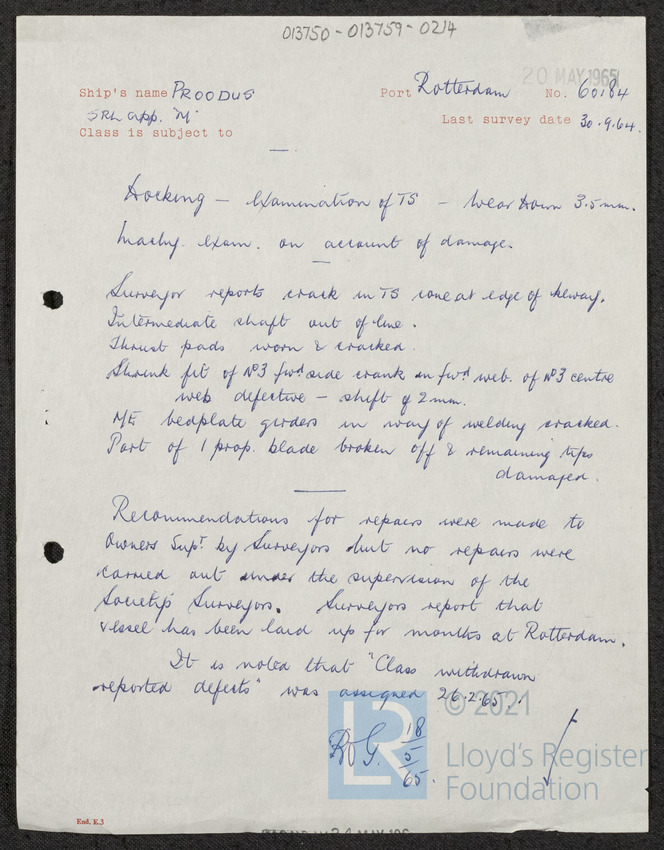 013750-013759-0214
20 MAY 1965
Ship's name PROODUS Port Rotterdam No. 60184
SRL app. 'M'
Class is subject to Last survey date 30.9.64.
—
Docking — Examination of TS — Wear down 3.5 mm.
Machy. Exam. on account of damage.
—
Surveyor reports crack in TS cone at edge of keway.
Intermediate shaft out of line.
Thrust pads worn & cracked.
Shrink fit of No3 fwd side crank in fwd web. of No3 centre
web defective — shift of 2 mm.
ME bedplate girders in way of welding cracked.
Part of 1 prop. blade broken off & remaining tips
damaged.
—
Recommendations for repairs were made to
Owners Supt by Surveyors but no repairs were
carried out under the supervision of the
Society's Surveyors. Surveyors report that
vessel has been laid up for months at Rotterdam.
It is noted that "Class withdrawn
reported defects" was assigned 26.2.65.
18/5/65.
LR
© 2021
Lloyd's Register
Foundation
End. K.3